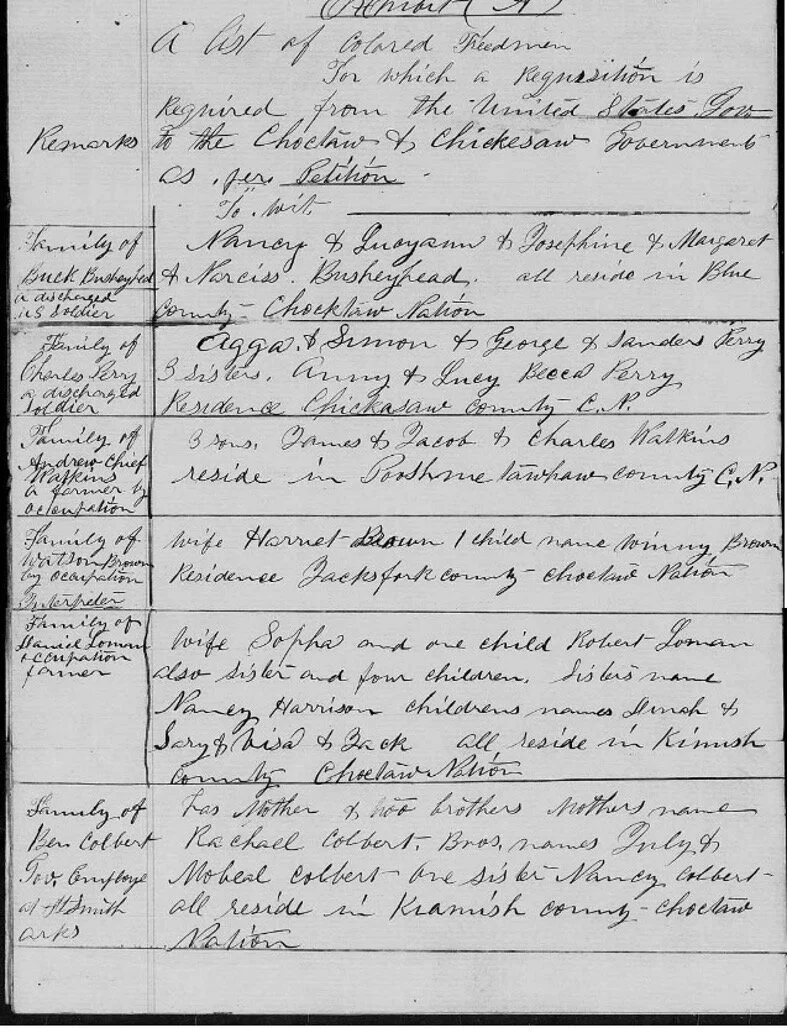 Exhibit (A)
A list of Colored Freedmen
For which a Requisition is
Required from the United States Gov
Remarks
to the Choctaw & Chickesaw Governments
as per Petition
To wit.
Family of
Buck Busheyhed
a discharged
U S Soldier
Nancy & & Josephine & Margaret
& Narciss. Busheyhead. all reside in Blue
County Chocktaw Nation
Family of
Charles Perry
a discharged
Soldier
Agga. & Simon & George & Sanders Perry
3 sisters. Anny & Lucy Becca Perry
Residence Chickasaw County C.N.
Family of
Andrew Chief
Watkins
a farmer by
occupation
3 sons. James & Jacob & Charles Watkins
reside in county C.N.
Family of
Watson Brown
by occupation
wife Harriet Brown 1 child name Winny Brown
Residence Jacksfork county Choctaw Nation
Family of
Daniel Loman
occupation
farmer
Wife Sopha and one child Robert Loman
also sister and four children. Sisters name
Nancy Harrison childrens names Dinah &
Sary & Visa & Jack all reside in Kimish
County Choctaw Nation
Family of
Ben Colbert
Gov. Employe
at Ft Smith
Arks
has Mother & two brothers Mothers name
Rachael Colbert. Bros. names July &
Mobeal Colbert one sister Nancy Colbert
all reside in Kiamish county Choctaw
Nation